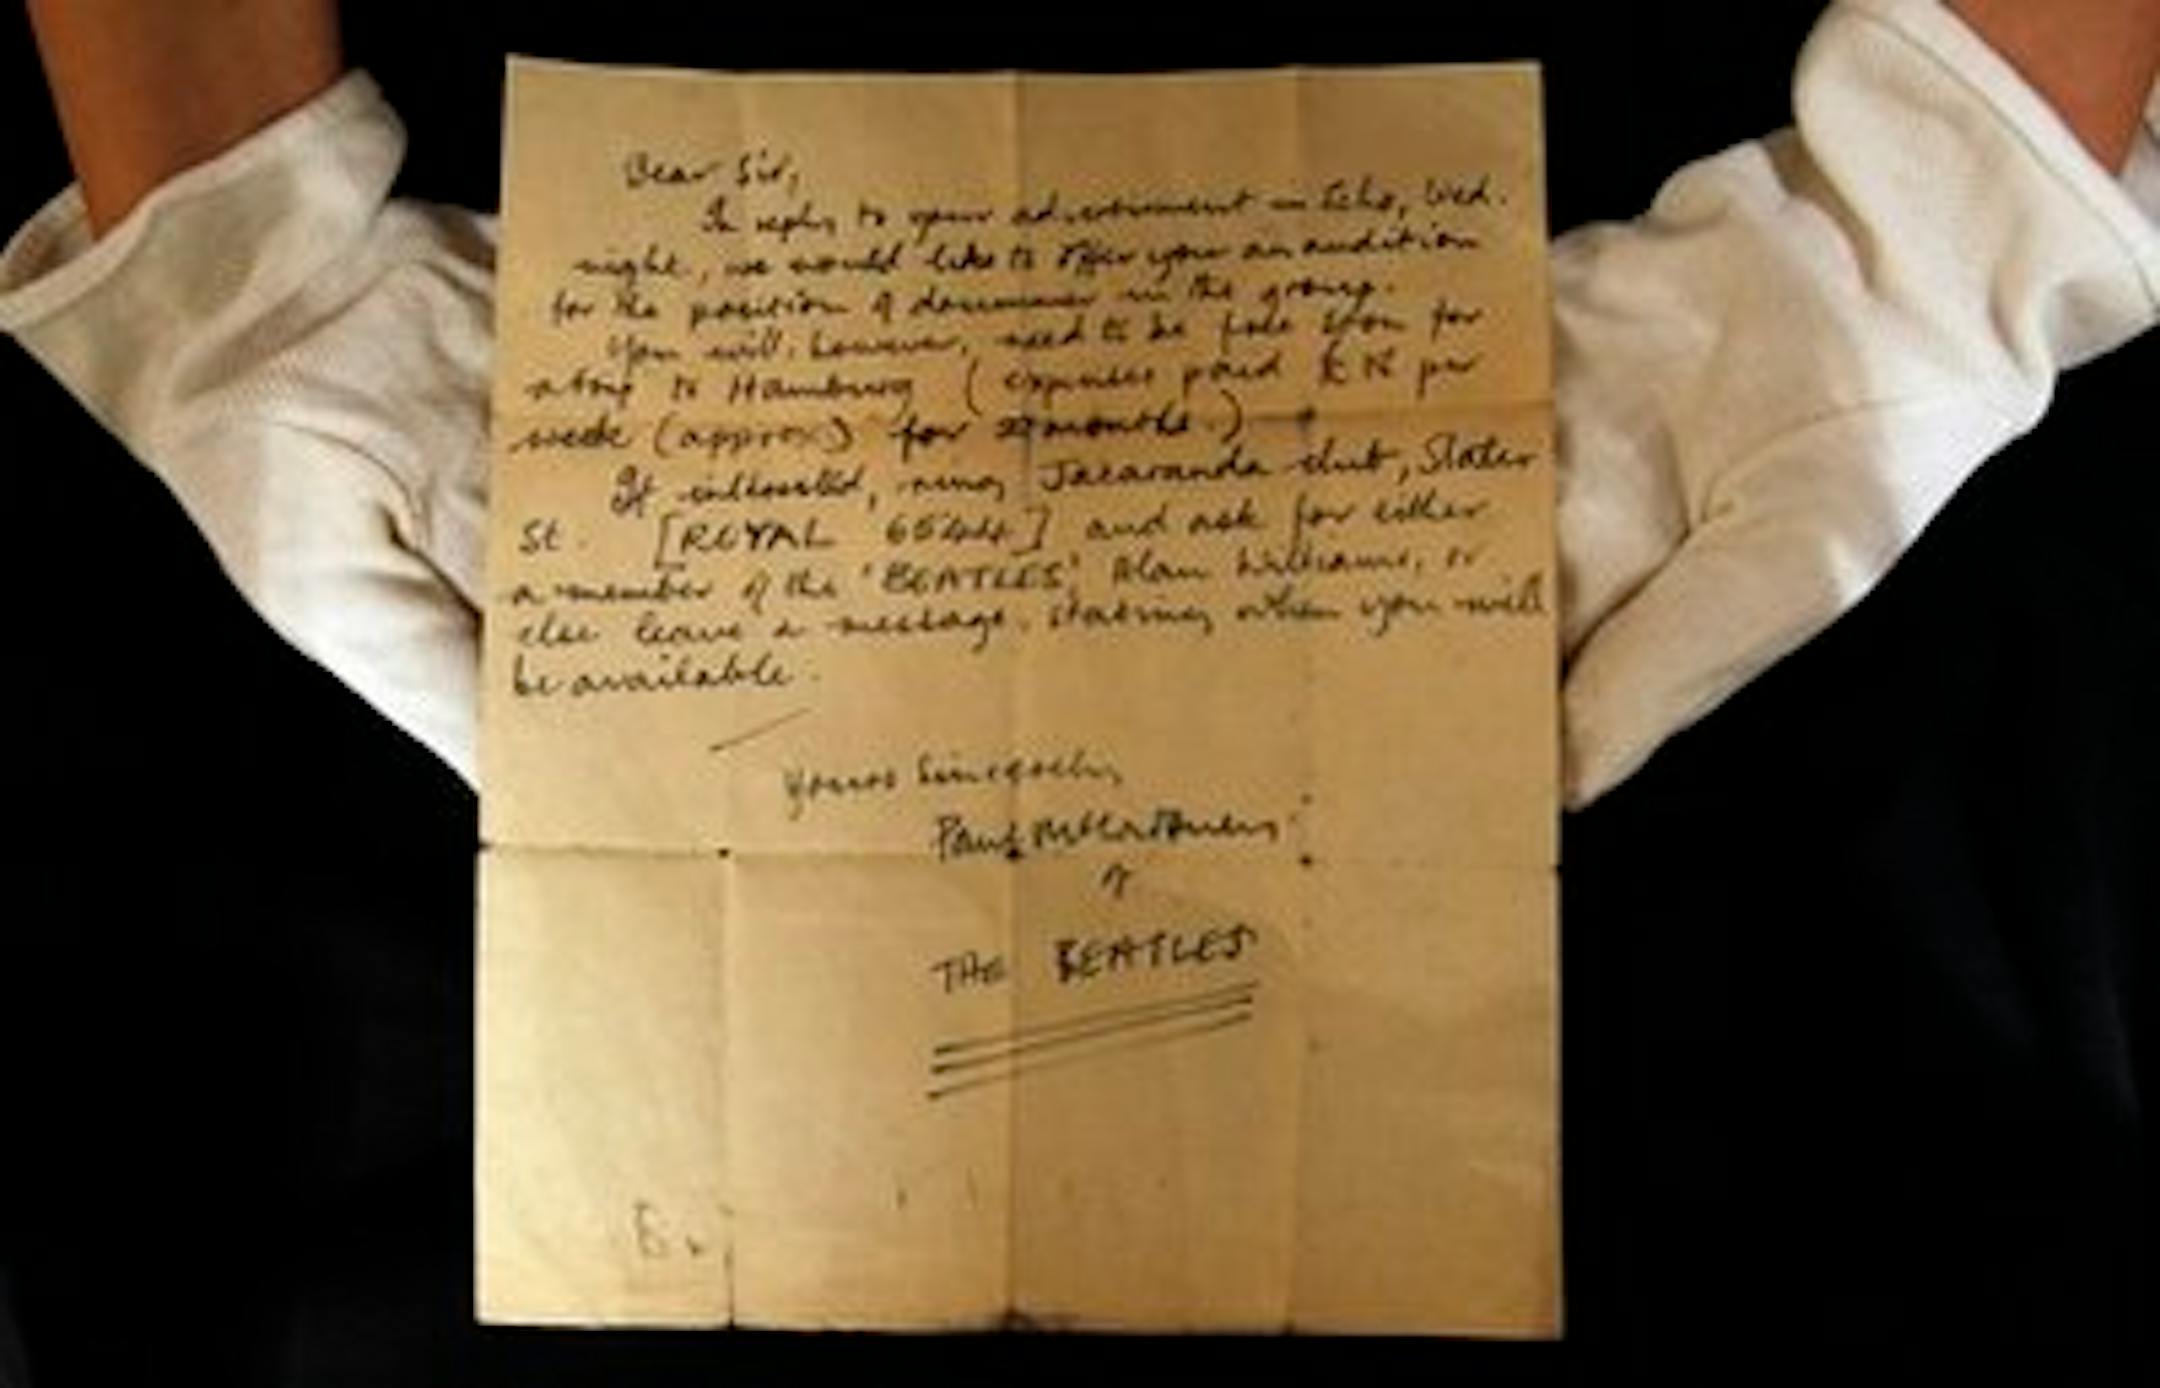 Dear Sir,
In reply to your advertisement in Echo, Wed.
night, we would like to offer you an audition
for the position of drummer in the group.
You will, however, need to be free soon for
a trip to Hamburg (expenses paid £18 per
week (approx.) for 2 months.)
If interested, ring Jacaranda club, Slater
St. [ROYAL 65444] and ask for either
a member of the 'BEATLES', Alan Williams, or
else leave a message, stating when you will
be available.
Yours Sincerely,
Paul McCartney
of
THE BEATLES